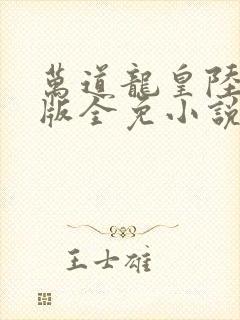 萬道龍皇陸
版全免小說
王士雄